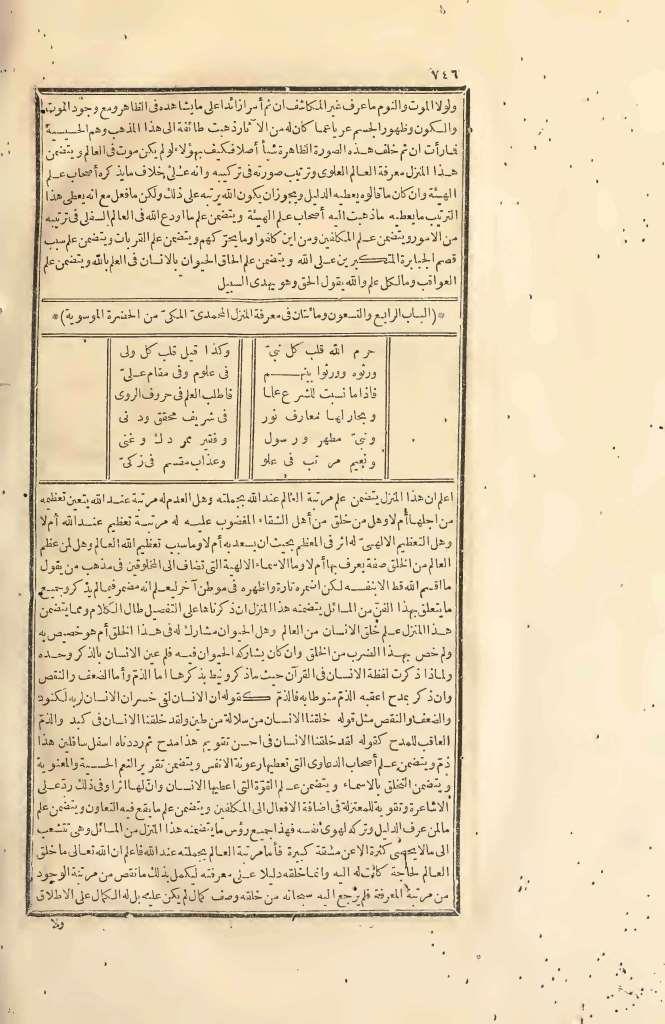 ٧٤٦
ولولا الموت والنوم ما عرف غير المكاشف ان ثم أسرارا زائدا على ما يشاهده فى الظاهر ومع وجود الموت
والسكون وظهور الجسم عرياعما كان له من الآثار ذهبت طائفة الى هذا المذهب وهم الحسيسية
فمارأت ان ثم خلف هذه الصورة الظاهرة شيأ أصلا فكيف بهؤلاء لو لم يكن موت فى العالم ويتضمن
هذا المنزل معرفة العالم العلوى وترتيب صورته فى تركيبه وانه على خلاف ما يذكره أصحاب علم
الهيئة وان كان ما قالوه يعطيه الدليل ويجوز أن يكون الله يرتبه على ذلك ولكن ما فعل مع انه يعطى هذا
الترتيب ما يعطيه ما ذهبت اليه أصحاب علم الهيئة ويتضمن علم ما اودع الله فى العالم السفلى فى ترتيبه
من الامور ويتضمن علم المكلفين ومن اين كلفوا وما يحركهم ويتضمن علم القربات ويتضمن علم سبب
قصم الجبابرة المتكبرين على الله ويتضمن علم الحاق الحيوان بالانسان فى العلم بالله ويتضمن علم
العواقب ومآلكل علم والله يقول الحق وهو يهدى السبيل
*(الباب الرابع والتسعون ومائتان فى معرفة المنزل المحمدىّ المكىّ من الحضرة الموسوية)*
حرم الله قلب كل نبىّ وكذا قيل قلب كل ولى
ورثوه وورثوا بنيهم فى علوم وفى مقام علىّ
فاذا ما نسبت للشرع علما فاطلب العلم فى حروف الروى
وبحار لها معارف نور فى شريف محقق ودنى
ونبىّ مطهر ورسول وفقير ممردك وغنى
ونعيم مرتب فى علو وعذاب مقسم فى زكىّ
اعلم ان هذا المنزل يتضمن علم مرتبة العالم عند الله بجملته وهل العدم له مرتبة عند الله يتعين تعظيمه
من اجلها أم لا وهل من خلق من أهل الشقاء المغضوب عليه له مرتبة تعظيم عند الله أم لا
وهل التعظيم الالهىّ له اثر فى المعظم بحيث ان يسعد به أم لا وما سبب تعظيم الله العالم وهل لمن عظم
العالم من الخلق صفة يعرف بها أم لا وما الاسماء الالهية التى تضاف الى المخلوقين فى مذهب من يقول
ما اقسم الله قط الا بنفسه لكن اضمره تارة واظهره فى موطن آخر ليعلم انه مضمر فيما لم يذكر وجميع
ما يتعلق بهذا الفنّ من المسائل يتضمنه هذا المنزل ان ذكرناها على التفصيل طال الكلام ومما يتضمن
هذا المنزل علم خلق الانسان من العالم وهل الحيوان مشارك له فى هذا الخلق أم هو خصيص به
ولم خص بهذا الضرب من الخلق وان كان يشاركه الحيوان فيه فلم عين الانسان بالذكر وحده
ولماذا ذكرت لفظة الانسان فى القرآن حيث ما ذكر ونيط بذكرها اما الذمّ واما الضعف والنقص
وان ذكر بمدح اعقبه الذمّ منوطا به فالذمّ كقوله ان الانسان لفى خسران الانسان لربه لكنود
والضعف والنقص مثل قوله خلقنا الانسان من سلالة من طين ولقد خلقنا الانسان فى كبد والذمّ
العاقب للمدح كقوله لقد خلقنا الانسان فى احسن تقويم هذا مدح ثم رددناه اسفل سافلين هذا
ذمّ ويتضمن علم أصحاب الدعاوى التى تعطيها رعونة الانفس ويتضمن تقرير النعم الحسية والمعنوية
ويتضمن التخلق بالاسماء ويتضمن علم القوّة التى اعطيها الانسان وان لها اثرا وفى ذلك ردّ على
الاشاعرة وتقوية للمعتزلة فى اضافة الافعال الى المكلفين ويتضمن علم ما يقع فيه التعاون ويتضمن علم
مالمن عرف الدليل وتركه لهوى نفسه فهذا جميع رؤس ما يتضمنه هذا المنزل من المسائل وهى تتشعب
الى ما لا يحصى كثرة الا عن مشقة كبيرة فأما مرتبة العالم بجملته عند الله فاعلم ان الله تعالى ما خلق
العالم لحاجة كانت له اليه وانما خلقه دليلا على معرفته ليكمل بذلك ما نقص من مرتبة الوجود
من مرتبة المعرفة فلم يرجع اليه سبحانه من خلقه وصف كمال لم يكن عليه بل له الكمال على الاطلاق
ولا